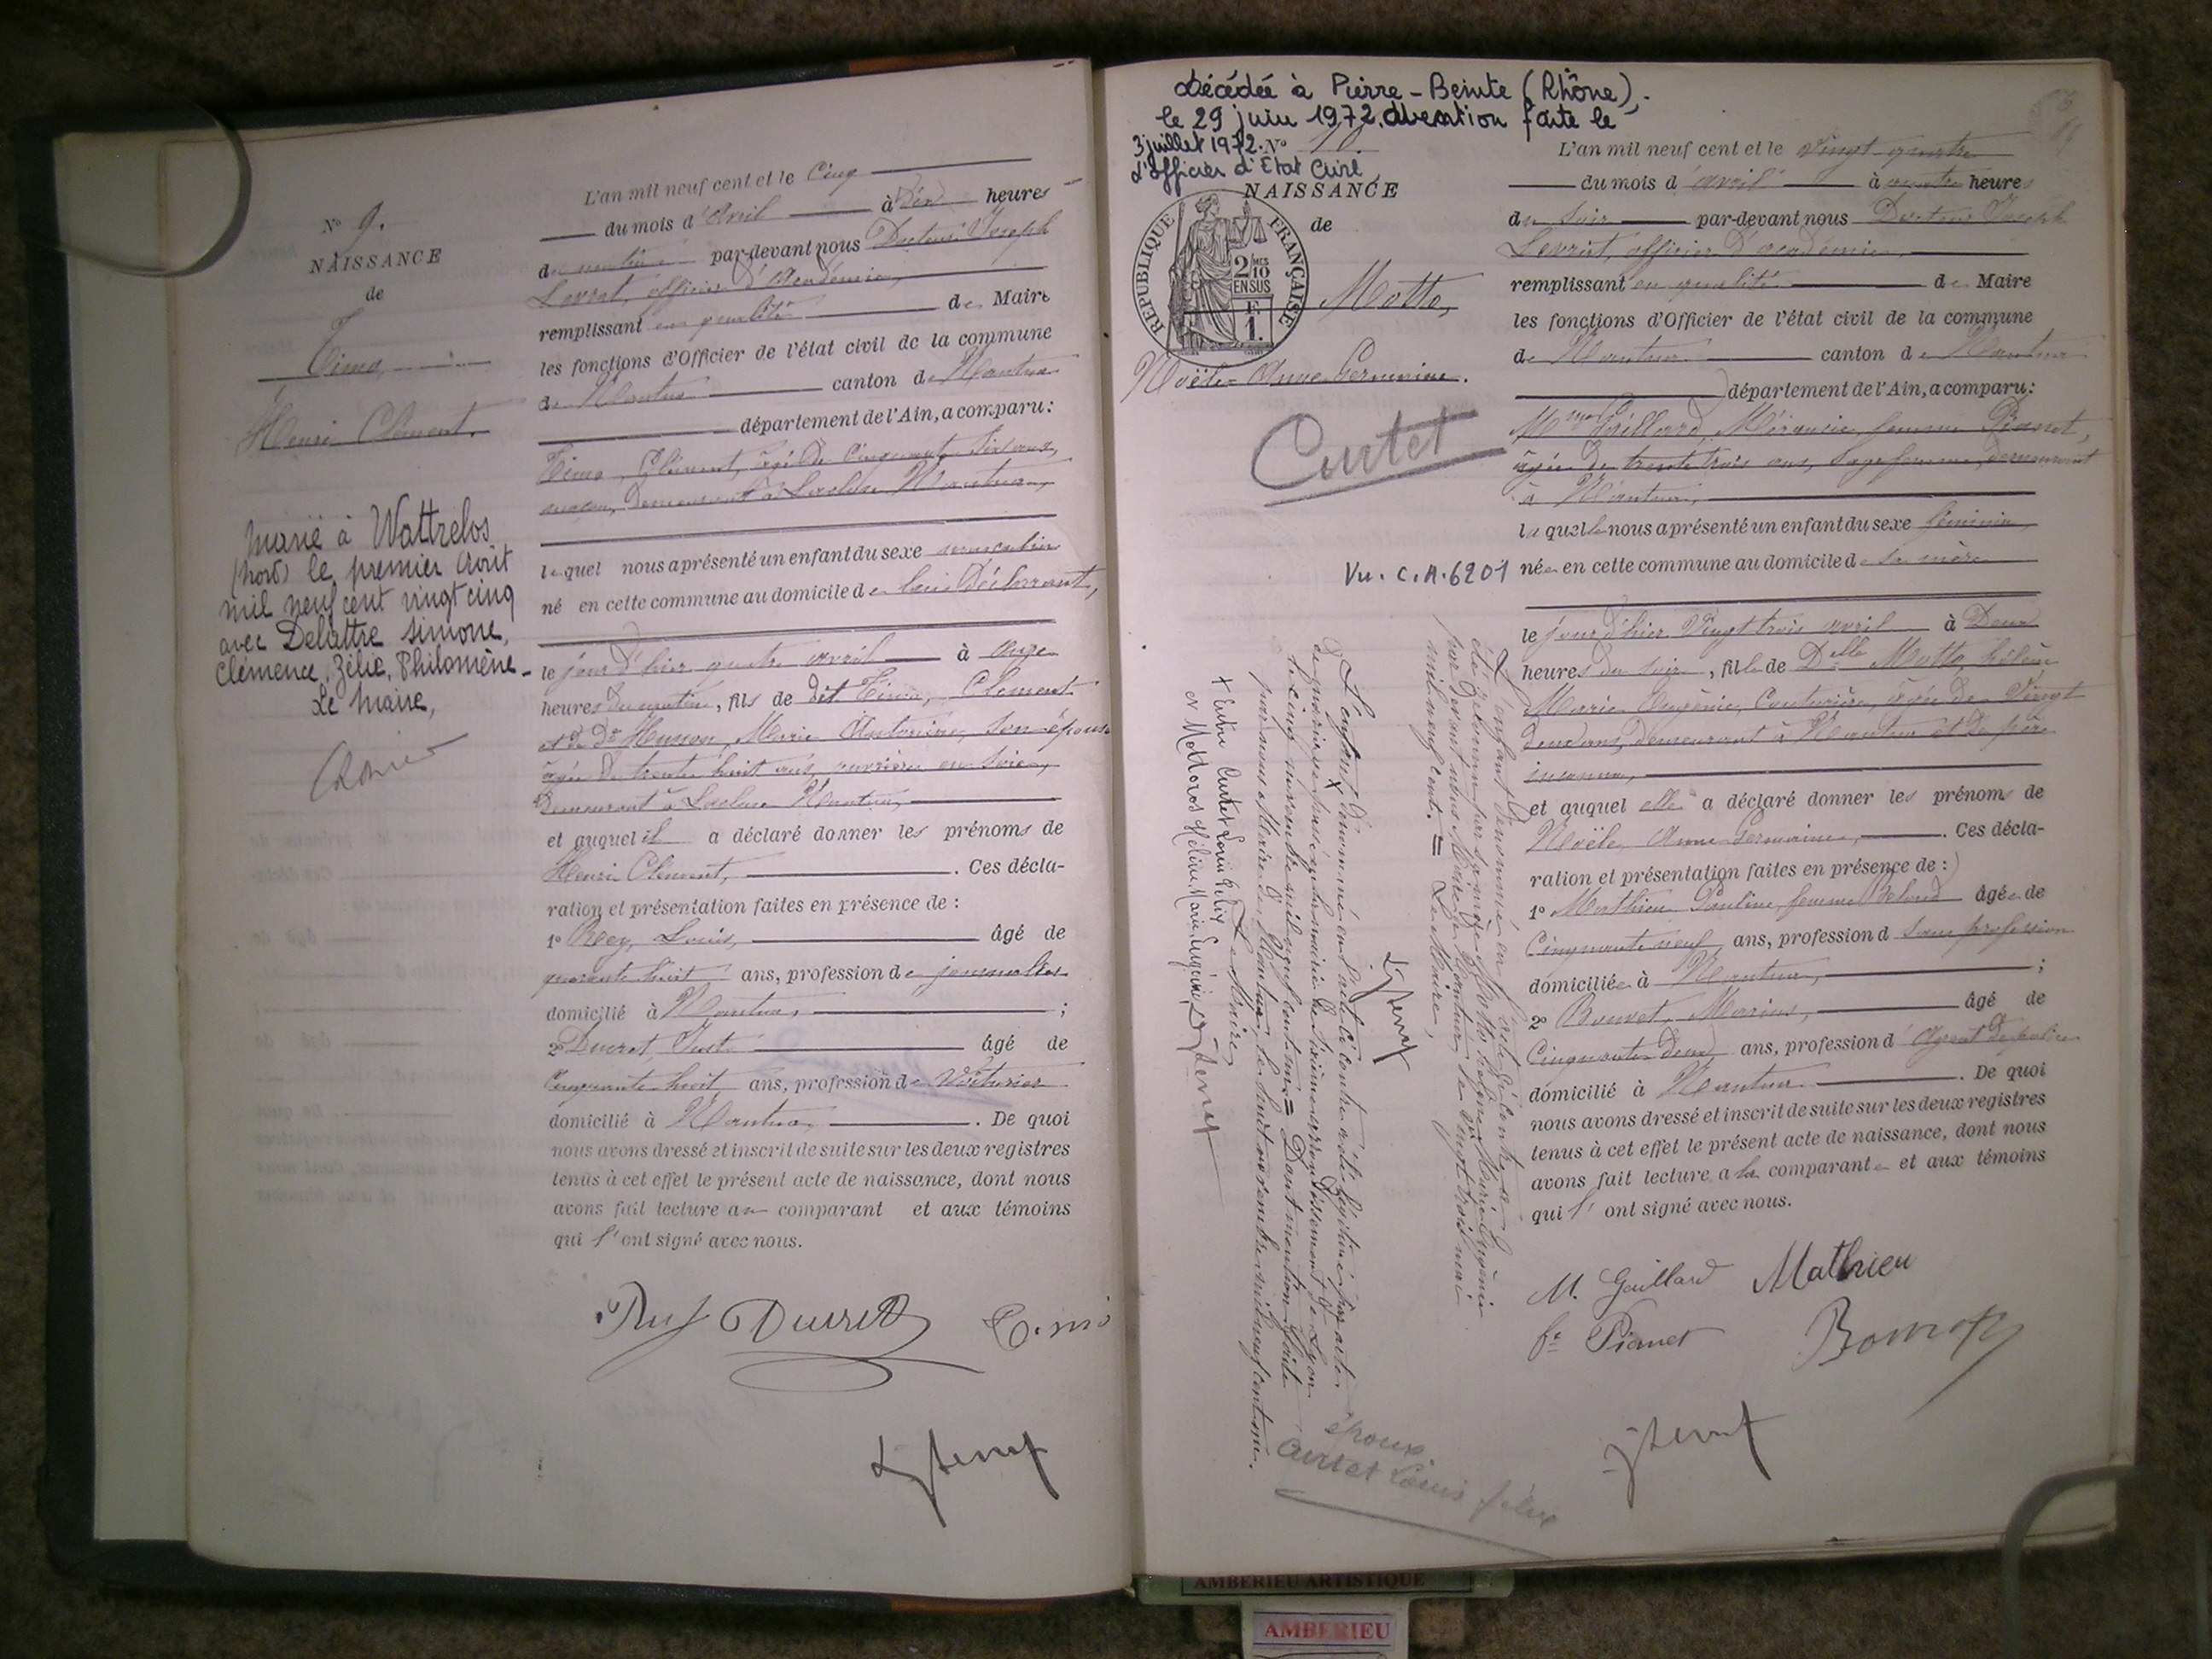 N° 9.
NAISSANCE
de
Timo
Henri Clément.
Marié à Wattrelos
(Nord) le premier Août
mil neuf cent vingt cinq
avec Delattre Simone,
Clémence, Zélie, Philomène
Le Maire,
L'an mil neuf cent et le Cinq
du mois d'Avril à Dix heures
du matin par-devant nous Docteur Joseph
Levrat, officier d'Académie,
remplissant en qualité de Maire
les fonctions d'Officier de l'état civil de la commune
de Nantua canton de Nantua
département de l'Ain, a comparu:
Timo, Clément, âgé de Cinquante six ans,
maçon, demeurant à Lacluse Nantua,
lequel nous a présenté un enfant du sexe masculin
né en cette commune au domicile de lui Déclarant,
le jour d'hier quatre avril à onze
heures du matin, fils de dit Timo, Clément
et de De Marie Antoinine, son épouse
âgée de trente huit ans, ouvrière en soie,
demeurant à Lacluse Nantua,
et auquel il a déclaré donner les prénoms de
Henri Clément, . Ces décla-
ration et présentation faites en présence de :
1° Rey, Louis, âgé de
quarante huit ans, profession de journalier
domicilié à Nantua, ;
2° Ducret, Just âgé de
Cinquante huit ans, profession de Voiturier
domicilié à Nantua, . De quoi
nous avons dressé et inscrit de suite sur les deux registres
tenus à cet effet le présent acte de naissance, dont nous
avons fait lecture au comparant et aux témoins
qui l'ont signé avec nous.
Ducret
Décédée à Pierre-Bénite (Rhône),
le 29 juin 1972. Mention faite le
3 juillet 1972. N° 10.
L'officier d'Etat Civil,
NAISSANCE
de
REPUBLIQUE FRANÇAISE
2/10 MES
EN SUS
F
1.
Motto,
Noële Anne Germaine.
Curtet
Vu. C.A. 6201
L'an mil neuf cent et le Vingt quatre
du mois d'avril à quatre heures
du soir par-devant nous Docteur Joseph
Levrat, officier d'académie,
remplissant en qualité de Maire
les fonctions d'Officier de l'état civil de la commune
de Nantua canton de Nantua
département de l'Ain, a comparu:
Mme Gaillard, femme Pianet,
âgée de trente trois ans, Sage femme, demeurant
à Nantua,
laquelle nous a présenté un enfant du sexe féminin
née en cette commune au domicile de sa mère
le jour d'hier Vingt trois avril à Deux
heures du soir, fille de Delle Motto, hélène
Marie Eugénie, Couturière, âgée de Vingt
deux ans, demeurant à Nantua et de père
inconnu,
et auquel elle a déclaré donner les prénoms de
Noële Anne Germaine, . Ces décla-
ration et présentation faites en présence de :
1° Mathieu Pauline, femme âgée de
Cinquante neuf ans, profession d Sans profession
domiciliée à Nantua, ;
2° Bouvet, Marius, âgé de
Cinquante deux ans, profession d'Agent de police
domicilié à Nantua . De quoi
nous avons dressé et inscrit de suite sur les deux registres
tenus à cet effet le présent acte de naissance, dont nous
avons fait lecture à la comparante et aux témoins
qui l'ont signé avec nous.
M. Gaillard Mathieu
fe Pianet
L'enfant dénommé en l'acte ci-contre a
été reconnu par sa mère Motto hélène Marie Eugénie
par devant nous Maire de Nantua le vingt trois mai
mil neuf cent. = Le Maire,
L'enfant dénommé en l'acte ci-contre a été légitimé par acte
de mariage passé à la mairie du sixième arrondissement de Lyon
le cinq novembre mil neuf cent un = Dont mention faite
par nous Maire de Nantua, le huit novembre mil neuf cent un.
Le Maire,
+ Entre Curtet Louis Félix
et Motto Hélène Marie Eugénie
époux
Curtet Louis félix
AMBERIEU ARTISTIQUE
AMBERIEU